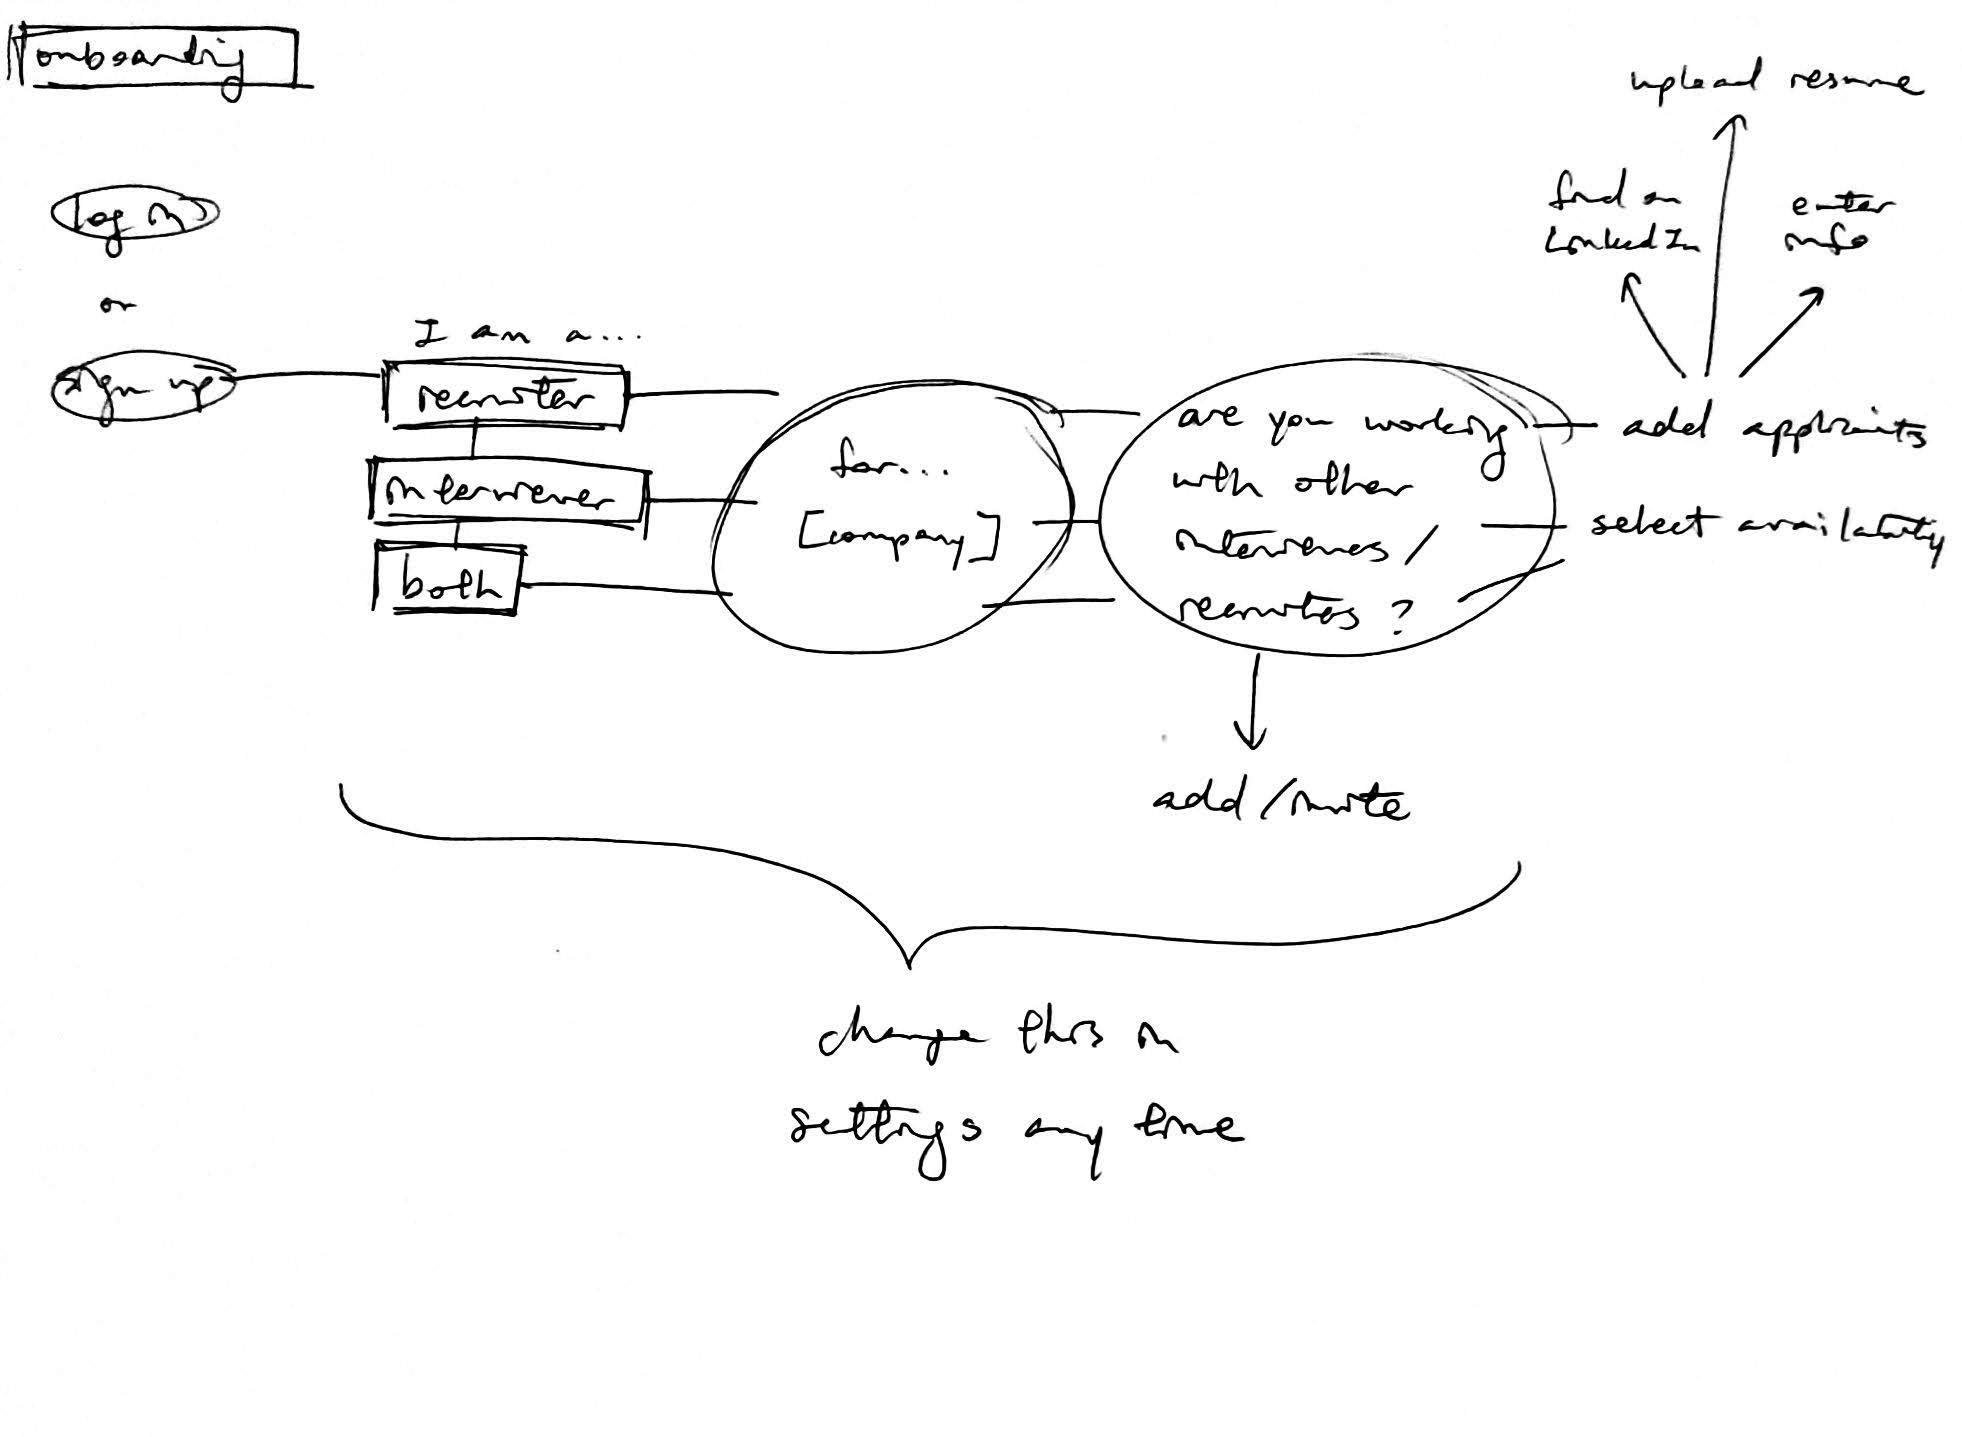 onboarding
log in
or
sign up
I am a...
recruiter
interviewer
both
for...
[company]
are you working
with other
interviewers /
recruiters ?
add / invite
add applicants
select availability
find on
LinkedIn
upload resume
enter
info
change this in
settings any time